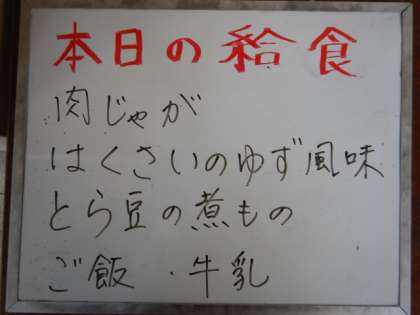 本日の給食
肉じゃが
はくさいのゆず風味
とら豆の煮もの
ご飯・牛乳